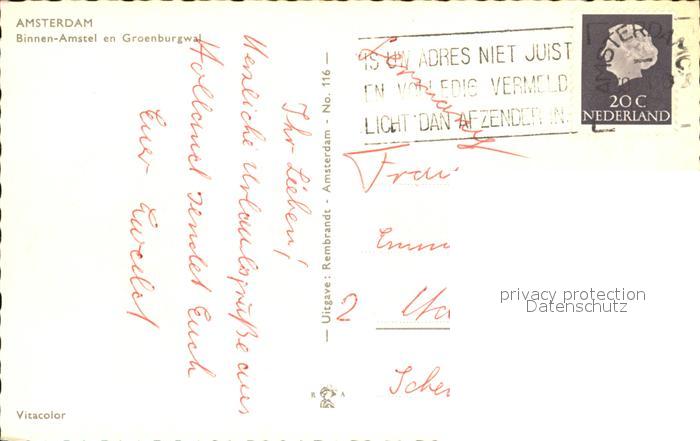 AMSTERDAM
Binnen-Amstel en Groenburgwal
Ihr Lieben!
Herzliche Urlaubsgrüße aus
Holland sendet Euch
Euer
Vitacolor
— Uitgave: Rembrandt - Amsterdam - No. 116 —
R A
IS UW ADRES NIET JUIST
EN VOLLEDIG VERMELD,
LICHT DAN AFZENDER IN.
AMSTERDAM
20 C
NEDERLAND
Frau
Emm
2 Ha
Scher
privacy protection
Datenschutz